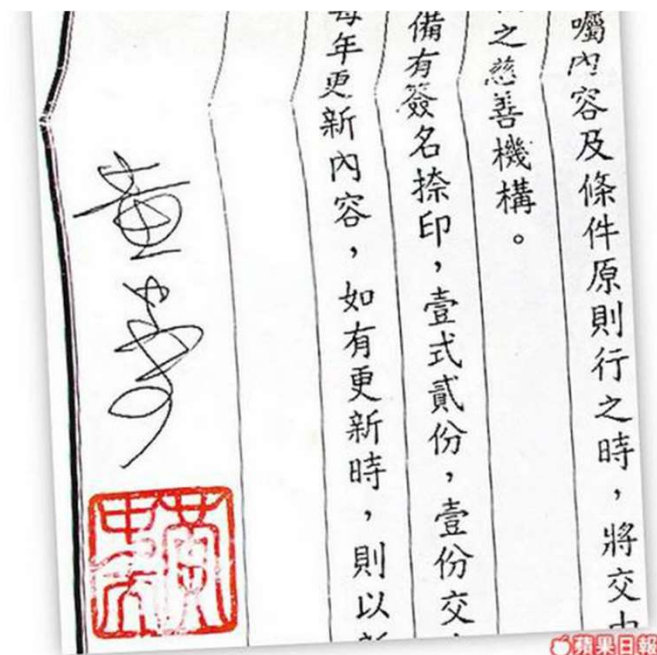 囑內容及條件原則行之時，將交由
之慈善機構。
備有簽名捺印，壹式貳份，壹份交
每年更新內容，如有更新時，則以新
蘋果日報